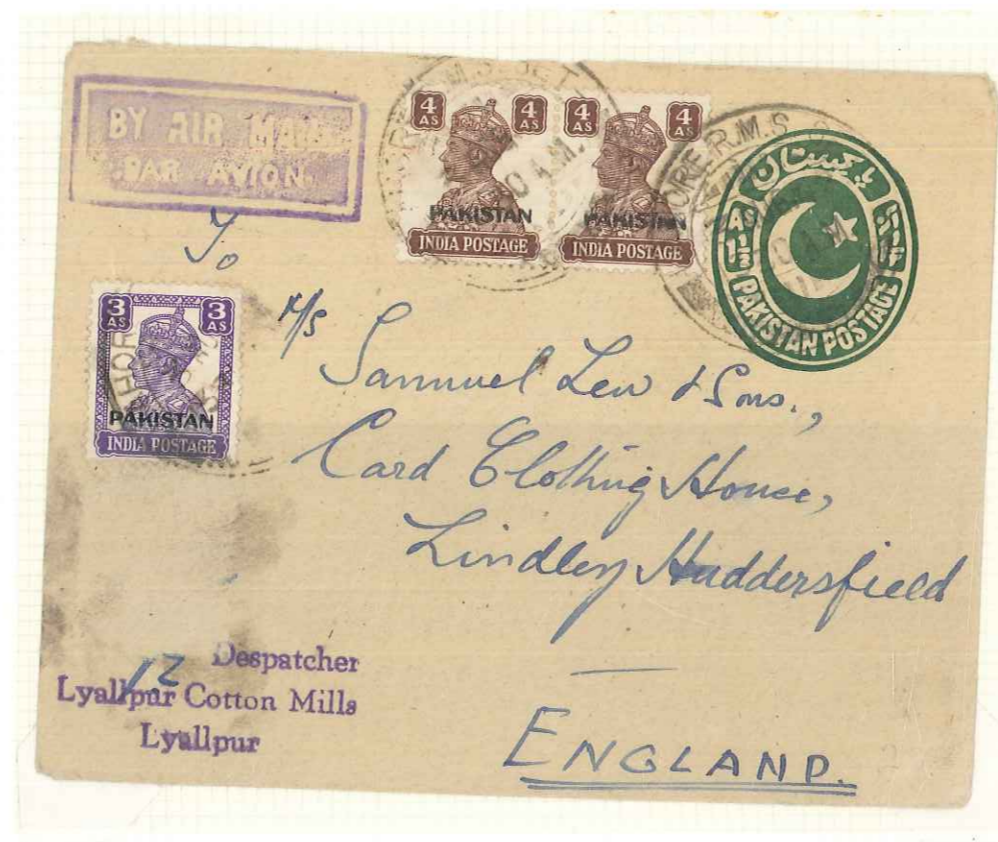 BY AIR MAIL
PAR AVION.
4 AS 4 AS
PAKISTAN
INDIA POSTAGE
4 AS 4 AS
PAKISTAN
INDIA POSTAGE
R.M.S.
A.M.
پاکستان
PAKISTAN POSTAGE
To
3 AS 3 AS
PAKISTAN
INDIA POSTAGE
M/S
Samuel Law & Sons.,
Card Clothing House,
Lindley Huddersfield
ENGLAND.
12
Despatcher
Lyallpur Cotton Mills
Lyallpur